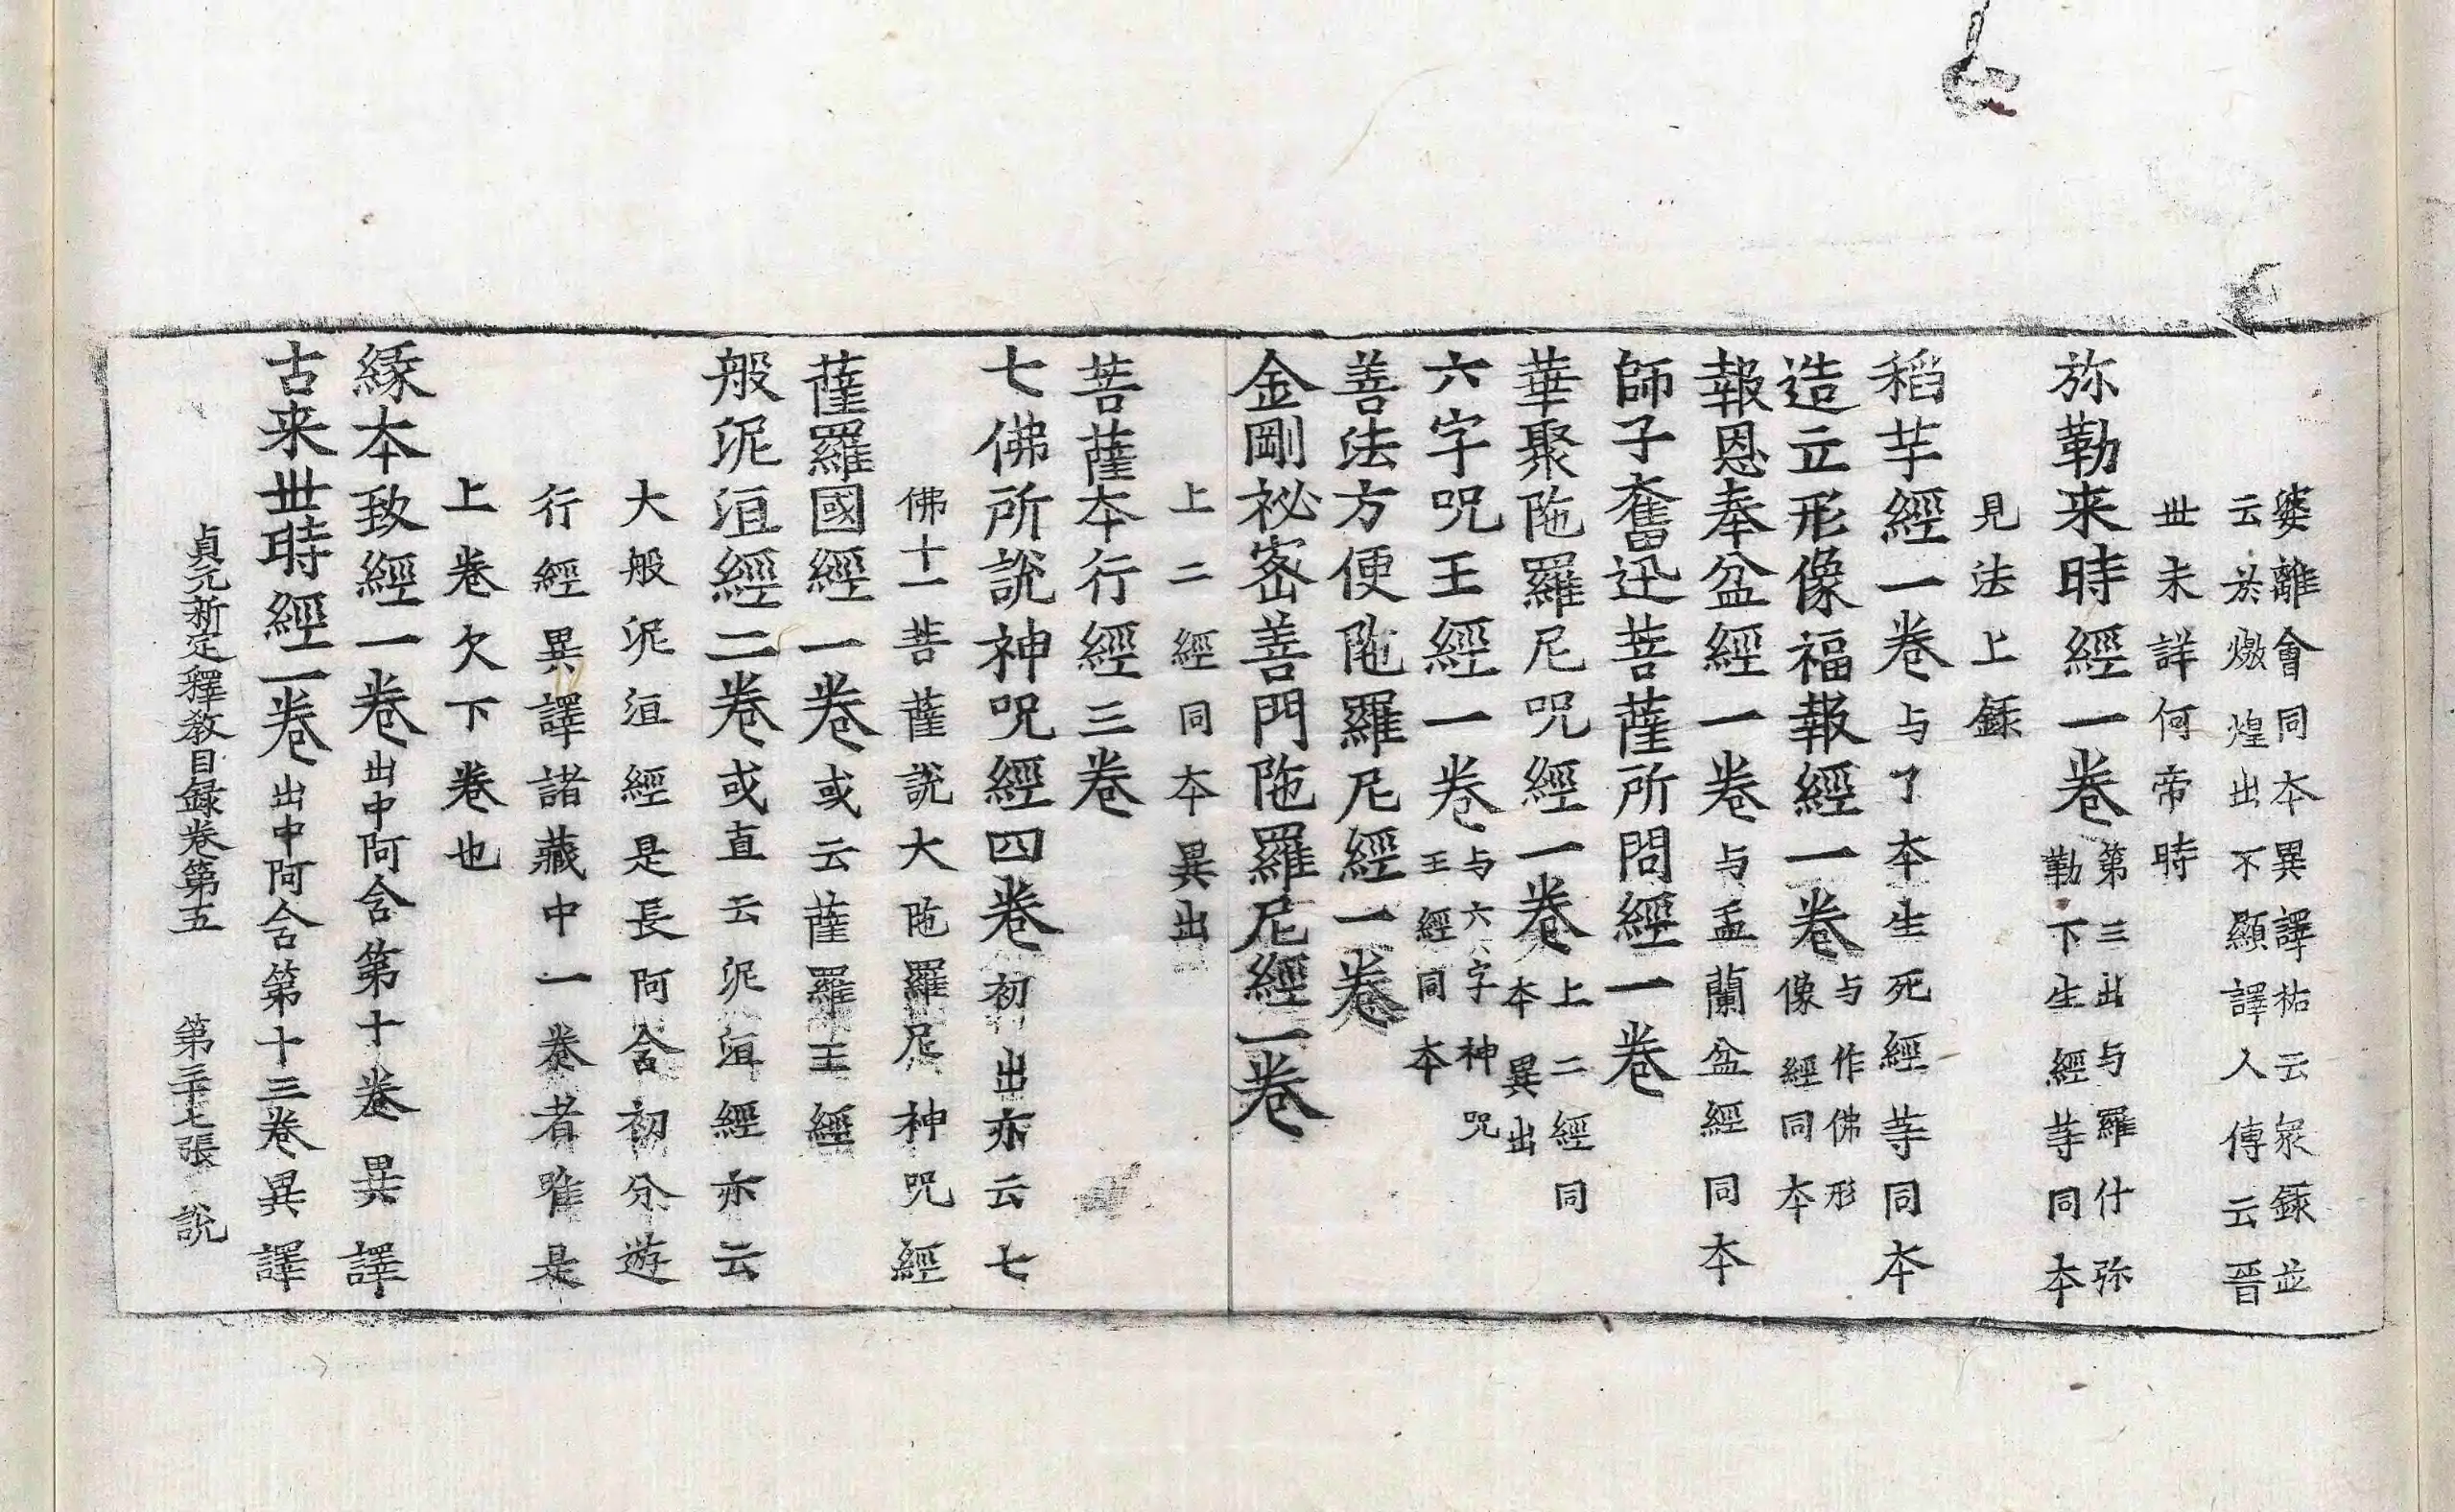 婆離會同本異譯祐云衆錄並
云於燉煌出不顯譯人傳云晉
世未詳何帝時
弥勒来時經一卷第三出与羅什弥
勒下生經等同本
見法上錄
稻芉經一卷与了本生死經等同本
造立形像福報經一卷与作佛形
像經同本
報恩奉盆經一卷与盂蘭盆經同本
師子奮迅菩薩所問經一卷
華聚陁羅尼呪經一卷上二經同
本異出
六字呪王經一卷与六字神呪
王經同本
善法方便陁羅尼經一卷
金剛祕密善門陁羅尼經一卷
上二經同本異出
菩薩本行經三卷
七佛所說神呪經四卷初出亦云七
佛十一菩薩說大陁羅尼神呪經
薩羅國經一卷或云薩羅王經
般泥洹經二卷或直云泥洹經亦云
大般泥洹經是長阿含初分遊
行經異譯諸藏中一卷者唯是
上卷欠下卷也
緣本致經一卷出中阿含第十卷異譯
古来世時經一卷出中阿含第十三卷異譯
貞元新定釋教目録卷第五 第二十七張 說